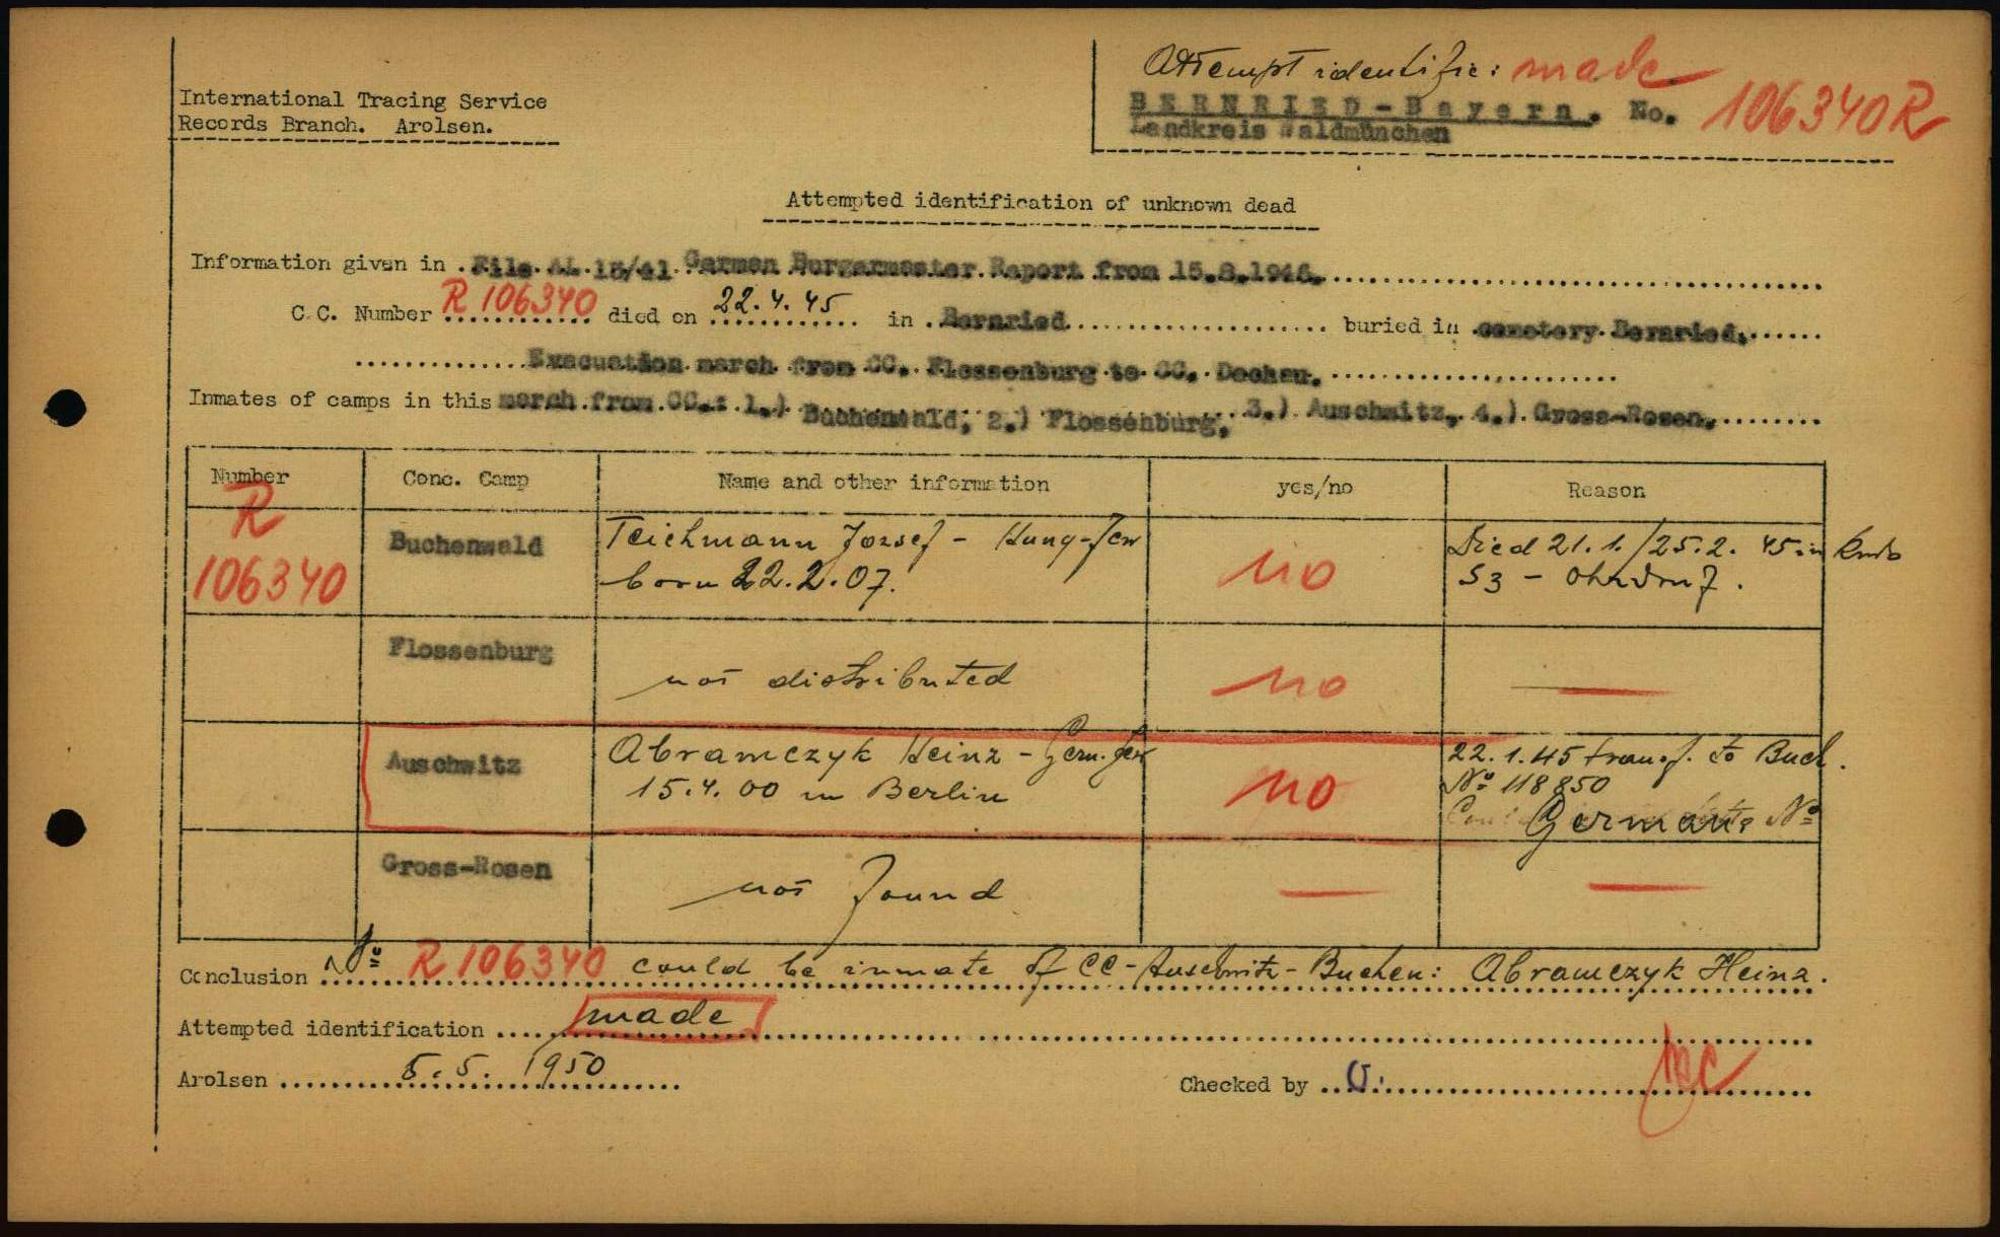 Attempt identific: made
International Tracing Service
Records Branch. Arolsen.
BERNRIED-Bayern. No. 106340R
Landkreis Waldmünchen
Attempted identification of unknown dead
Information given in File AL 15/41 German Burgermester Raport from 15.8.1946.
C.C. Number R 106340 died on 22.4.45 in Bernried buried in cemetery Bernried,
Evacuation march from CC. Flossenburg to CC. Dachau.
Inmates of camps in this march from CC.: 1.) Buchenwald, 2.) Flossenburg, 3.) Auschwitz, 4.) Gross-Rosen,
Number Conc. Camp Name and other information yes/no Reason
R 106340 Buchenwald Teichmann Jozsef - Hung-Jew no Died 21.1./25.2. 45 in Kmdo
born 22.2.07. S3 - Ohrdruf.
Flossenburg not distributed no —
Auschwitz Abramczyk Heinz - Germ. Jew no 22.1.45 transf. to Buch.
15.4.00 in Berlin No 118850
German No
Gross-Rosen not found — —
Conclusion No R 106340 could be inmate of CC-Auschwitz-Buchen: Abramczyk Heinz.
Attempted identification made
Arolsen 5.5.1950 Checked by U.